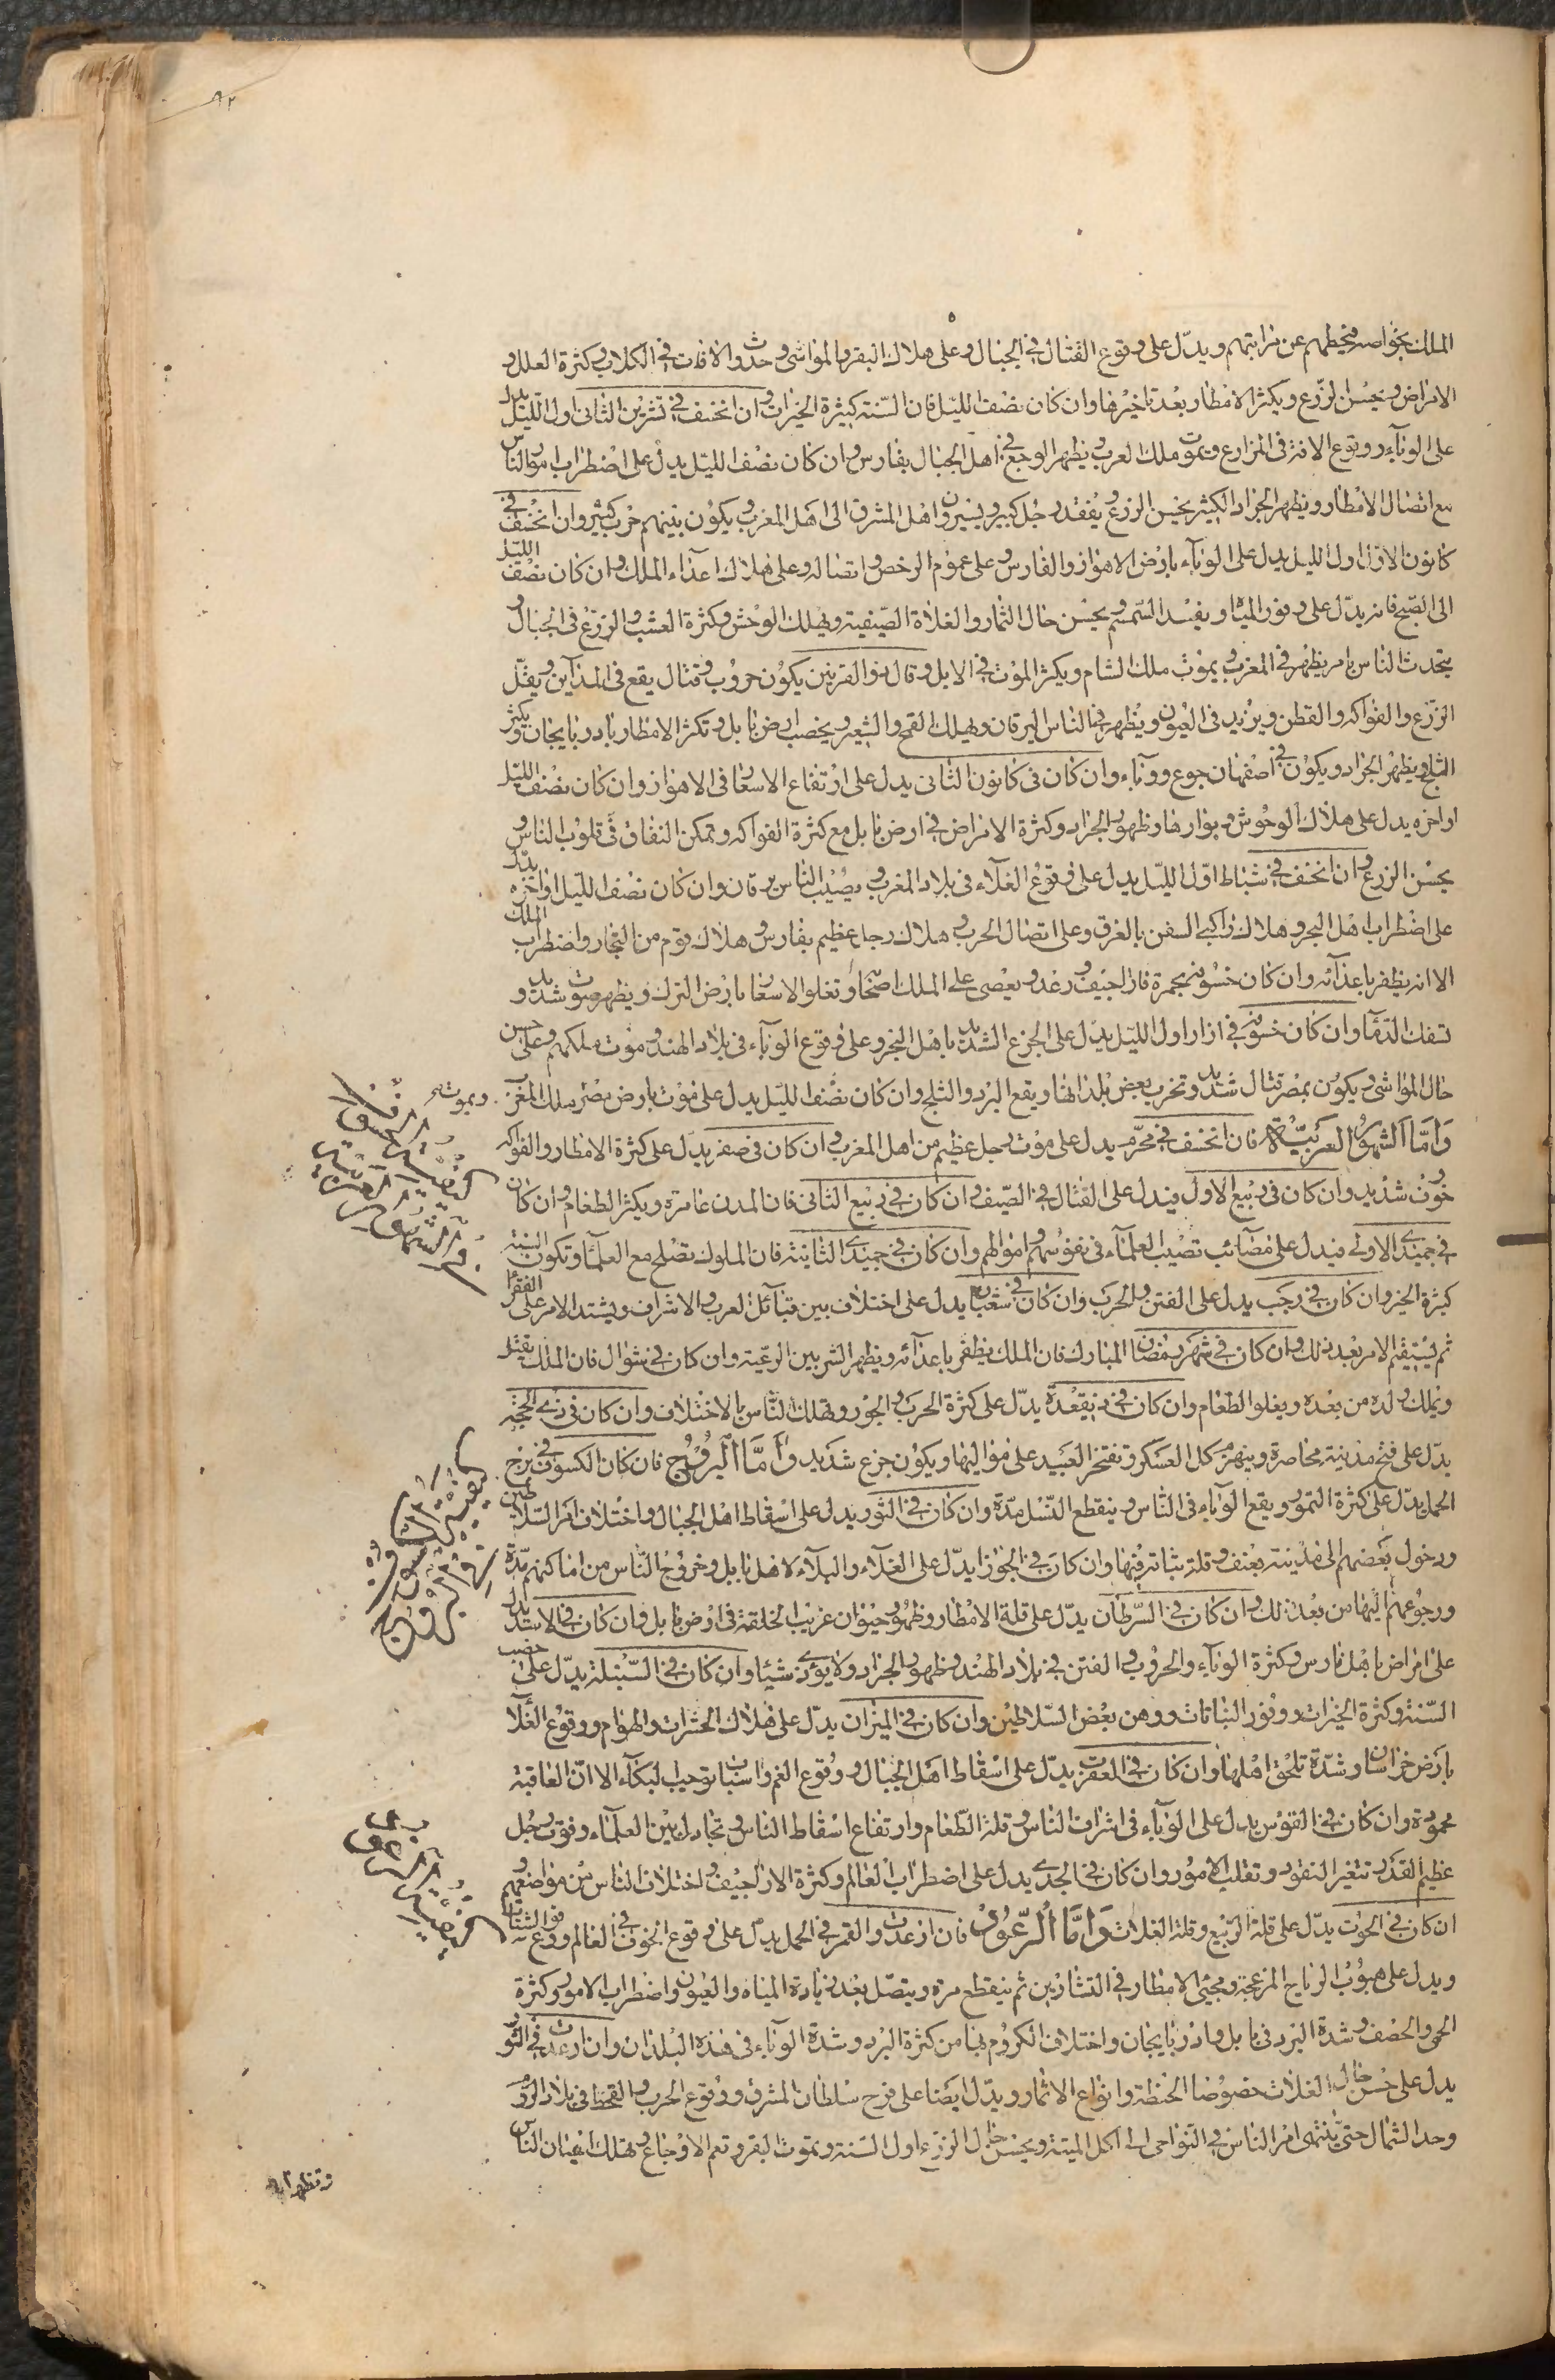 ٩٢
الملك بخواصه ويحطهم عن مراتبهم ويدل على وقوع القتال في الجبال وعلى هلاك البقر والمواشي وحدوث الافات في الكلاب وكثرة العلل و
الامراض ويحسن الزرع ويكثر الامطار بعد تاخيرها وان كان نصف الليل فان السنة كثيرة الخيرات وان انخسف في تشرين الثاني اول الليل يدل
على الوبآء ووقوع الافة في المزارع وتموت ملك العرب ويظهر الوجع في اهل الجبال بفارس وان كان نصف الليل يدل على اضطراب امور الناس
مع اتصال الامطار ويظهر الجراد الكثير بحسن الزرع ويفقد رجل كبير ويسيرون اهل المشرق الى اهل المغرب ويكون بينهم حرب كثير وان انخسف في
كانون الاول اول الليل يدل على الوبآء بارض الاهواز والفارس وعلى عموم الرخص واتصاله وعلى هلاك اعدآء الملك وان كان نصف الليل
الى الصبح فانه يدل على وفور المياه ويفسد السمسم ويحسن حال الثمار والغلاة الصيفية ويهلك الوحش وكثرة العشب والزرع في الجبال و
يتحدث الناس بامر يظهر في المغرب ويموت ملك الشام ويكثر الموت في الابل وقال ذو القرنين يكون حروب وقتال يقع في المدآين ويقل
الزرع والفواكه والقطن ويزيد في العيون ويظهر في الناس اليرقان ويهلك القمح والشعير ويخصب ارض بابل وتكثر الامطار باذربايجان ويكثر
الثلج ويظهر الجراد ويكون في اصفهان جوع ووبآء وان كان في كانون الثاني يدل على ارتفاع الاسعار في الاهواز وان كان نصف الليل
او اخره يدل على هلاك الوحوش وبوارها وظهور الجراد وكثرة الامراض في ارض بابل مع كثرة الفواكه وتمكن النفاق في قلوب الناس و
يحسن الزرع وان انخسف في شباط اول الليل يدل على وقوع الغلآء في بلاد المغرب ويصيب الناس يرقان وان كان نصف الليل او اخره يدل
على اضطراب اهل البحر وهلاك راكبي السفن بالغرق وعلى اتصال الحرب وهلاك رجل عظيم بفارس وهلاك قوم من التجار واضطراب الملك
الا انه يظفر باعدآئه وان كان خسوفه بحمرة فاراجيف ورعد ويعصى على الملك اصحابه وتغلو الاسعار بارض الترك ويظهر موت شديد و
تسفك الدمآ وان كان خسوفه في اذار اول الليل يدل على الجزع الشديد باهل البحر وعلى وقوع الوبآء في بلاد الهند وموت ملكهم وعلى حسن
حال المواشي ويكون بمصر قتال شديد وتخرب بعض بلدانها ويقع البرد والثلج وان كان نصف الليل يدل على موت بارض مصر ملك المغرب ويموت
وَاَمَّا الشهور العَربيّة فان انخسف في محرّم يدل على موت رجل عظيم من اهل المغرب وان كان في صفر يدل على كثرة الامطار والفواكه
وخوف شديد وان كان في ربيع الاول فيدل على القتال في الصيف وان كان في ربيع الثاني فان المدن عامرة ويكثر الطعام وان كان
في جميدى الاولى فيدل على مصائب تصيب العلمآء في نفوسهم واموالهم وان كان في جميدى الثانية فان الملوك تصلح مع العلمآ وتكون السنة
كثيرة الخير وان كان في رجب يدل على الفتن والحرب وان كان في شعبان يدل على اختلاف بين قبآئل العرب والاشراف ويشتد الامر على الفقرا
ثم يستقيم الامر بعد ذلك وان كان في شهر رمضان المبارك فان الملك يظفر باعدآئه ويظهر الشر بين الرعية وان كان في شوال فان الملك يقتل
ويملك ولده من بعده ويغلو الطعام وان كان في ذيقعدة يدل على كثرة الحرب والجور وتهلك الناس بالاختلاف وان كان في ذي الحجة
يدل على فتح مدينة محاصرة وينهزم كل العسكر وتفتخر العبيد على مواليها ويكون جزع شديد وَاَمَّا البُروُج فان كان الكسوف في برج
الحمل يدل على كثرة التمور ويقع الوباء في الناس وينقطع النسل مدة وان كان في الثور يدل على اسقاط اهل الجبال واختلاف امر السلاطين
ودخول بعضهم الى مدينة بعنف وقلة ثباته فيها وان كان في الجوزا يدل على الغلآء والبلآء لاهل بابل وخروج الناس من اماكنهم مدة
ورجوعهم اليها من بعد ذلك وان كان في السرطان يدل على قلة الامطار وظهور حيوان غريب الخلقة في ارض بابل وان كان في الاسد يدل
على امراض باهل فارس وكثرة الوبآء والحروب والفتن في بلاد الهند وظهور الجراد ولا يؤذي شيئا وان كان في السنبلة يدل على خصب
السنة وكثرة الخيرات ووفور النباتات ووهن بعض السلاطين وان كان في الميزان يدل على هلاك الحشرات والهوام ووقوع الغلآ
بارض خراسان وشدة تلحق اهلها وان كان في العقرب يدل على اسقاط اهل الجبال ووقوع الغم واسباب توجب البكآء الا ان العاقبة
محمودة وان كان في القوس يدل على الوبآء في اشراف الناس وقلة الطعام وارتفاع اسقاط الناس وتجادل بين العلمآء وفوت رجل
عظيم القدر وتتغير النقود وتقلب الامور وان كان في الجدي يدل على اضطراب العالم وكثرة الاراجيف واختلاف الناس من مواضعهم و
ان كان في الحوت يدل على قلة الربيع وقلة الغلات وَاَمَّا الرّعُوُد فان ارعدت والقمر في الحمل يدل على وقوع الخوف في العالم ووقوع
ويدل على هبوب الرياح المزعجة ومجيئ الامطار في التشارين ثم ينقطع مرة ويتصل بعد زيادة المياه والعيون واضطراب الامور وكثرة
الحمى والحصف وشدة البرد في بابل واذربايجان واختلاف الكروم بها من كثرة البرد وشدة الوبآء في هذه البلدان وان ارعدت في الثور
يدل على حسن حال الغلات خصوصا الحنطة وانواع الاثمار ويدل ايضا على فرح سلطان المشرق ووقوع الحرب والقحط في بلاد الروم
وحد الشمال حتى ينتهى امر الناس في النواحي الى اكل الميتة ويحسن حال الزرع اول السنة وتموت البقر وتعم الاوجاع وتهلك اعيان الناس
وتظهر